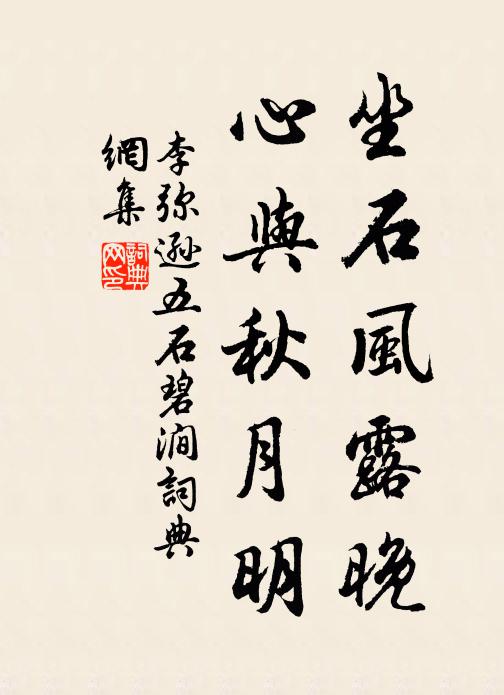 坐石風露晚
心與秋月明
李弥遜五石碧澗詞典
網集
詞典
网印